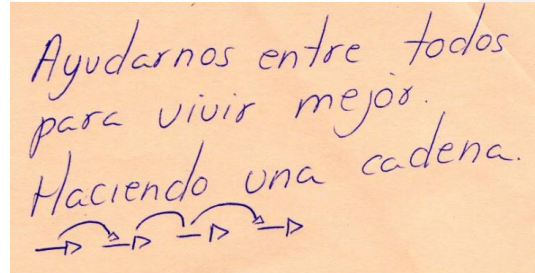 Ayudarnos entre todos
para vivir mejor.
Haciendo una cadena.